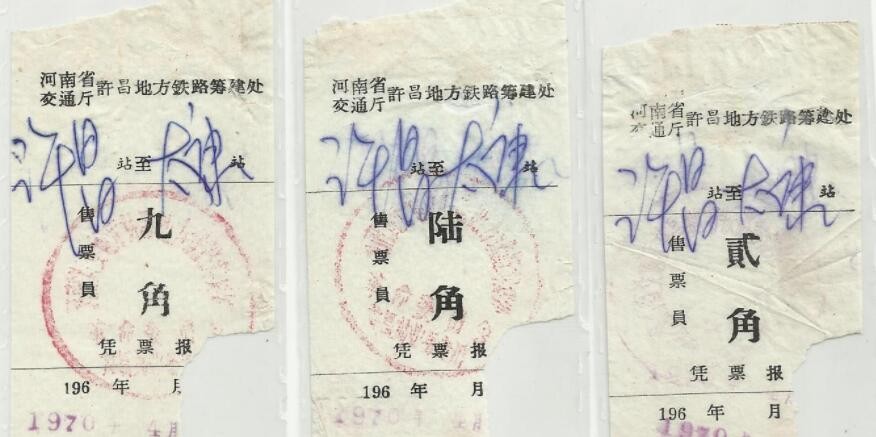 河南省
交通厅 許昌地方鉄路筹建处
许昌 站至 大陳 站
售票員
九角
凭票报
196 年 月
1970 年 4月
河南省
交通厅 許昌地方鉄路筹建处
许昌 站至 大陳 站
售票員
陆角
凭票报
196 年 月
河南省
交通厅 許昌地方鉄路筹建处
许昌 站至 大陳 站
售票員
貳角
凭票报
196 年 月
1970